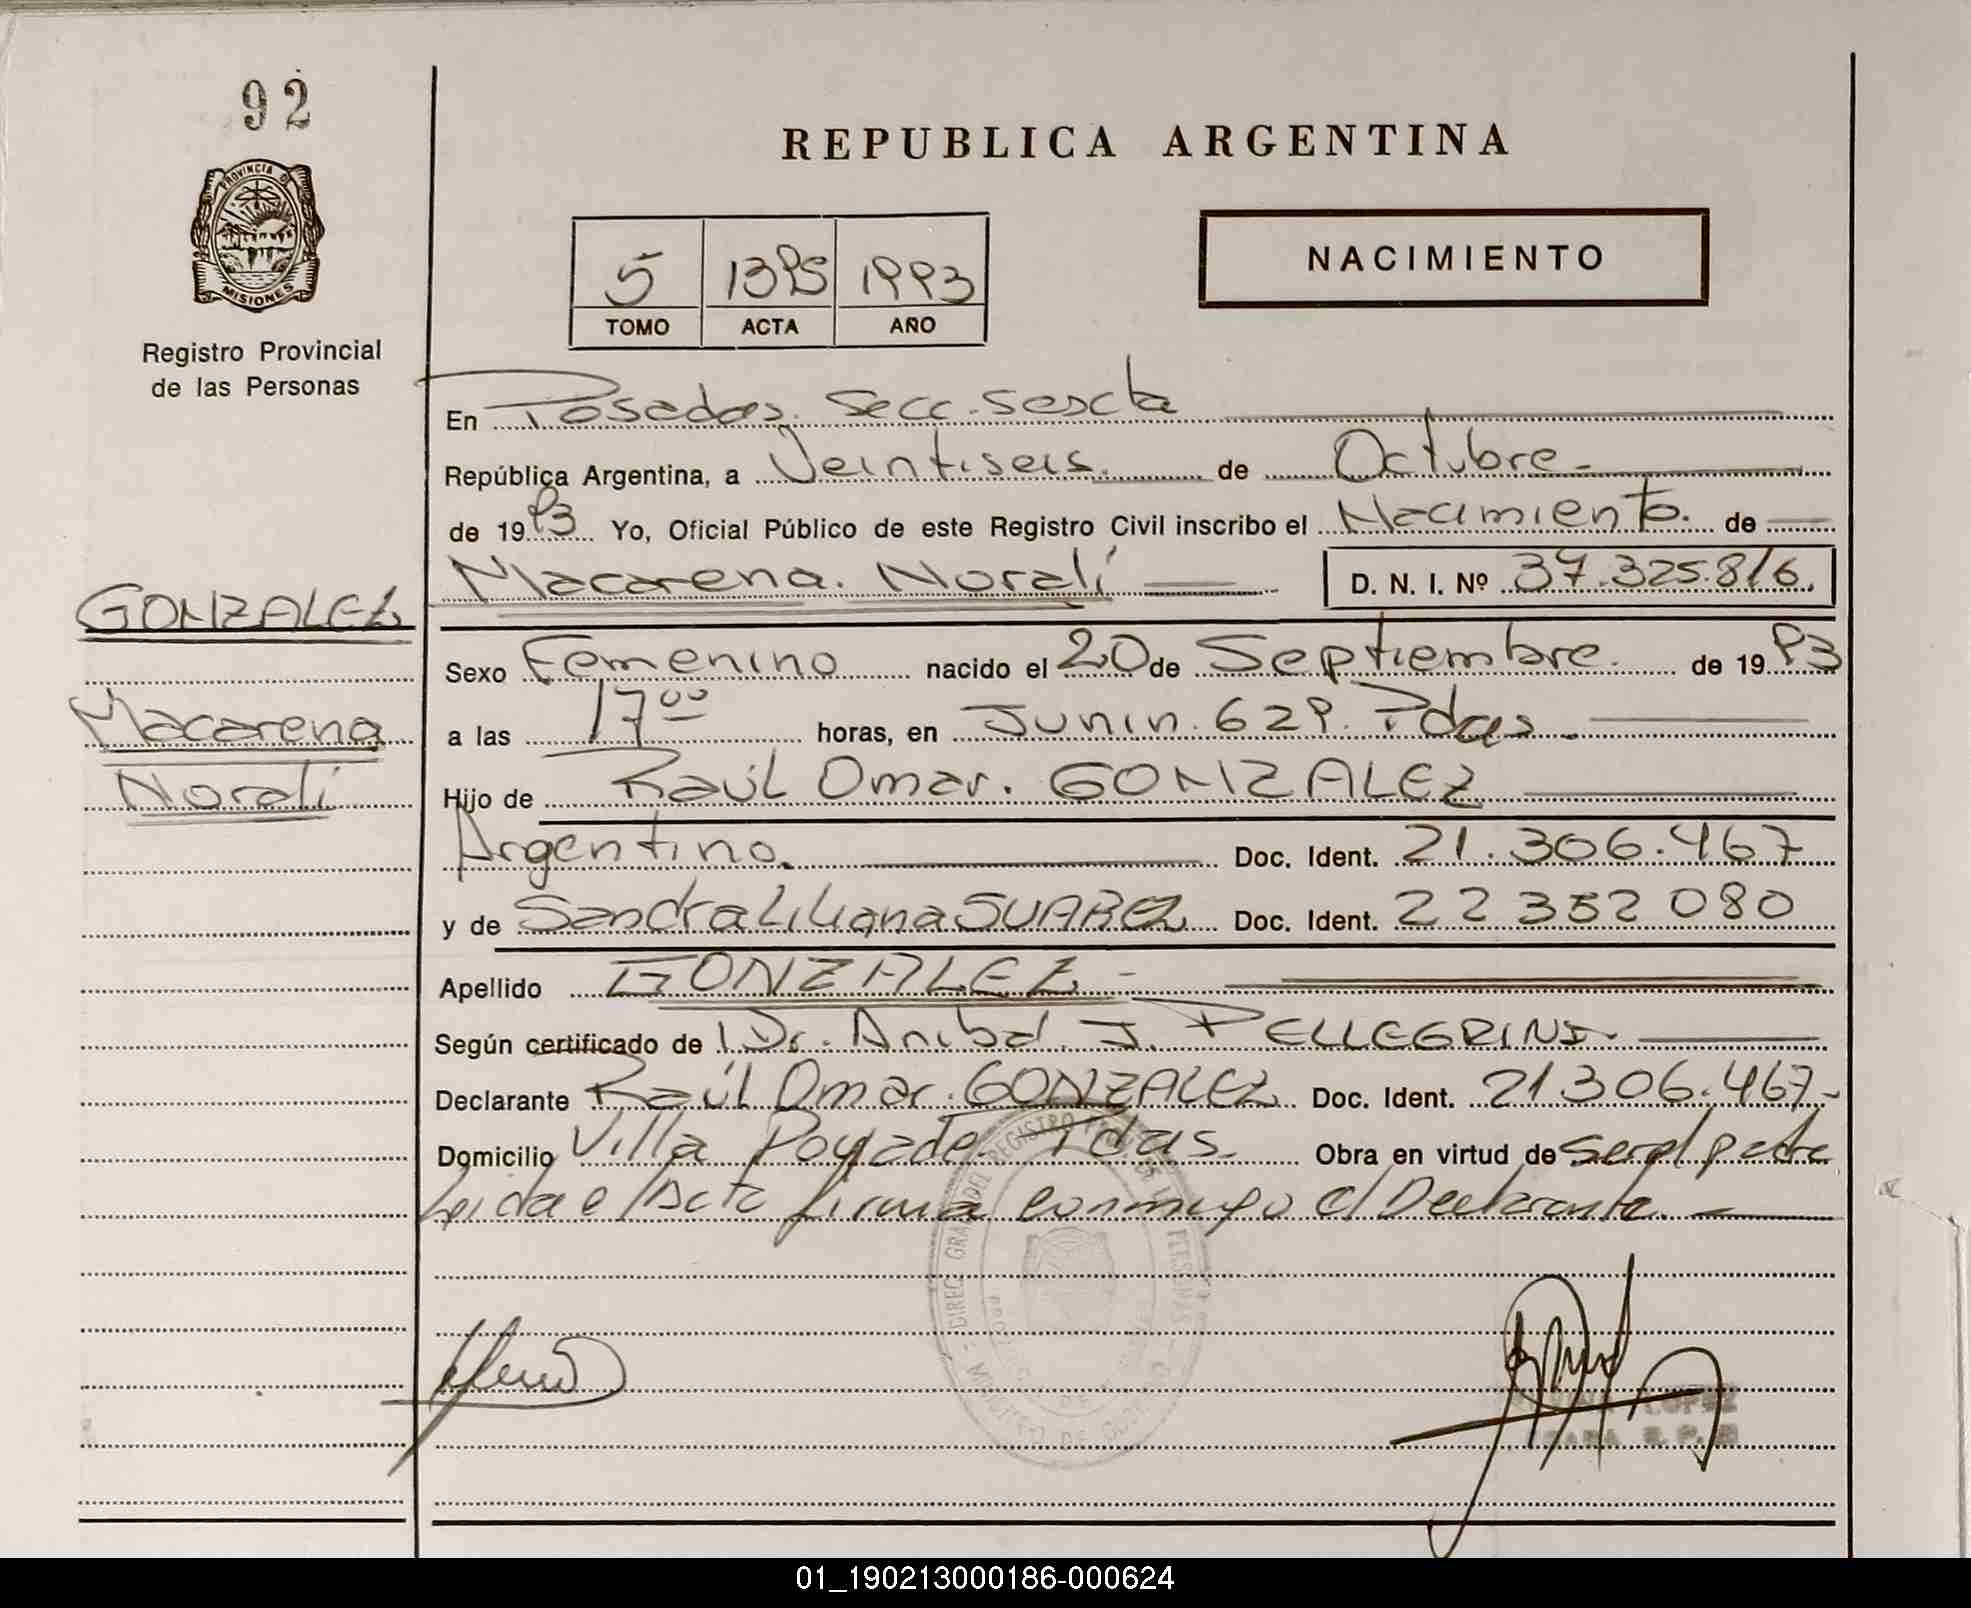 92
REPUBLICA ARGENTINA
PROVINCIA DE
MISIONES
Registro Provincial
de las Personas
5 1395 1993
TOMO ACTA AÑO
NACIMIENTO
En Posadas. Secc. Sexta
República Argentina, a Veintiseis. de Octubre.
de 1993 Yo, Oficial Público de este Registro Civil inscribo el Nacimiento. de
Macarena. Noralí D. N. I. Nº 37.325.816.
GONZALEZ
Macarena
Noralí
Sexo Femenino nacido el 20 de Septiembre. de 1993
a las 17 00 horas, en Junin. 629. Pdas.
Hijo de Raúl Omar. GONZALEZ
Argentino. Doc. Ident. 21.306.467
y de Sandra Liliana SUAREZ Doc. Ident. 22 352 080
Apellido GONZALEZ.-
Según certificado de Dr. Anibal. J. PELLEGRINI.
Declarante Raúl Omar. GONZALEZ Doc. Ident. 21.306.467-
Domicilio Villa Poujade Pdas. Obra en virtud de ser el padre
Leida el Acta firma conmigo el Declarante.
LOPEZ
01_190213000186-000624